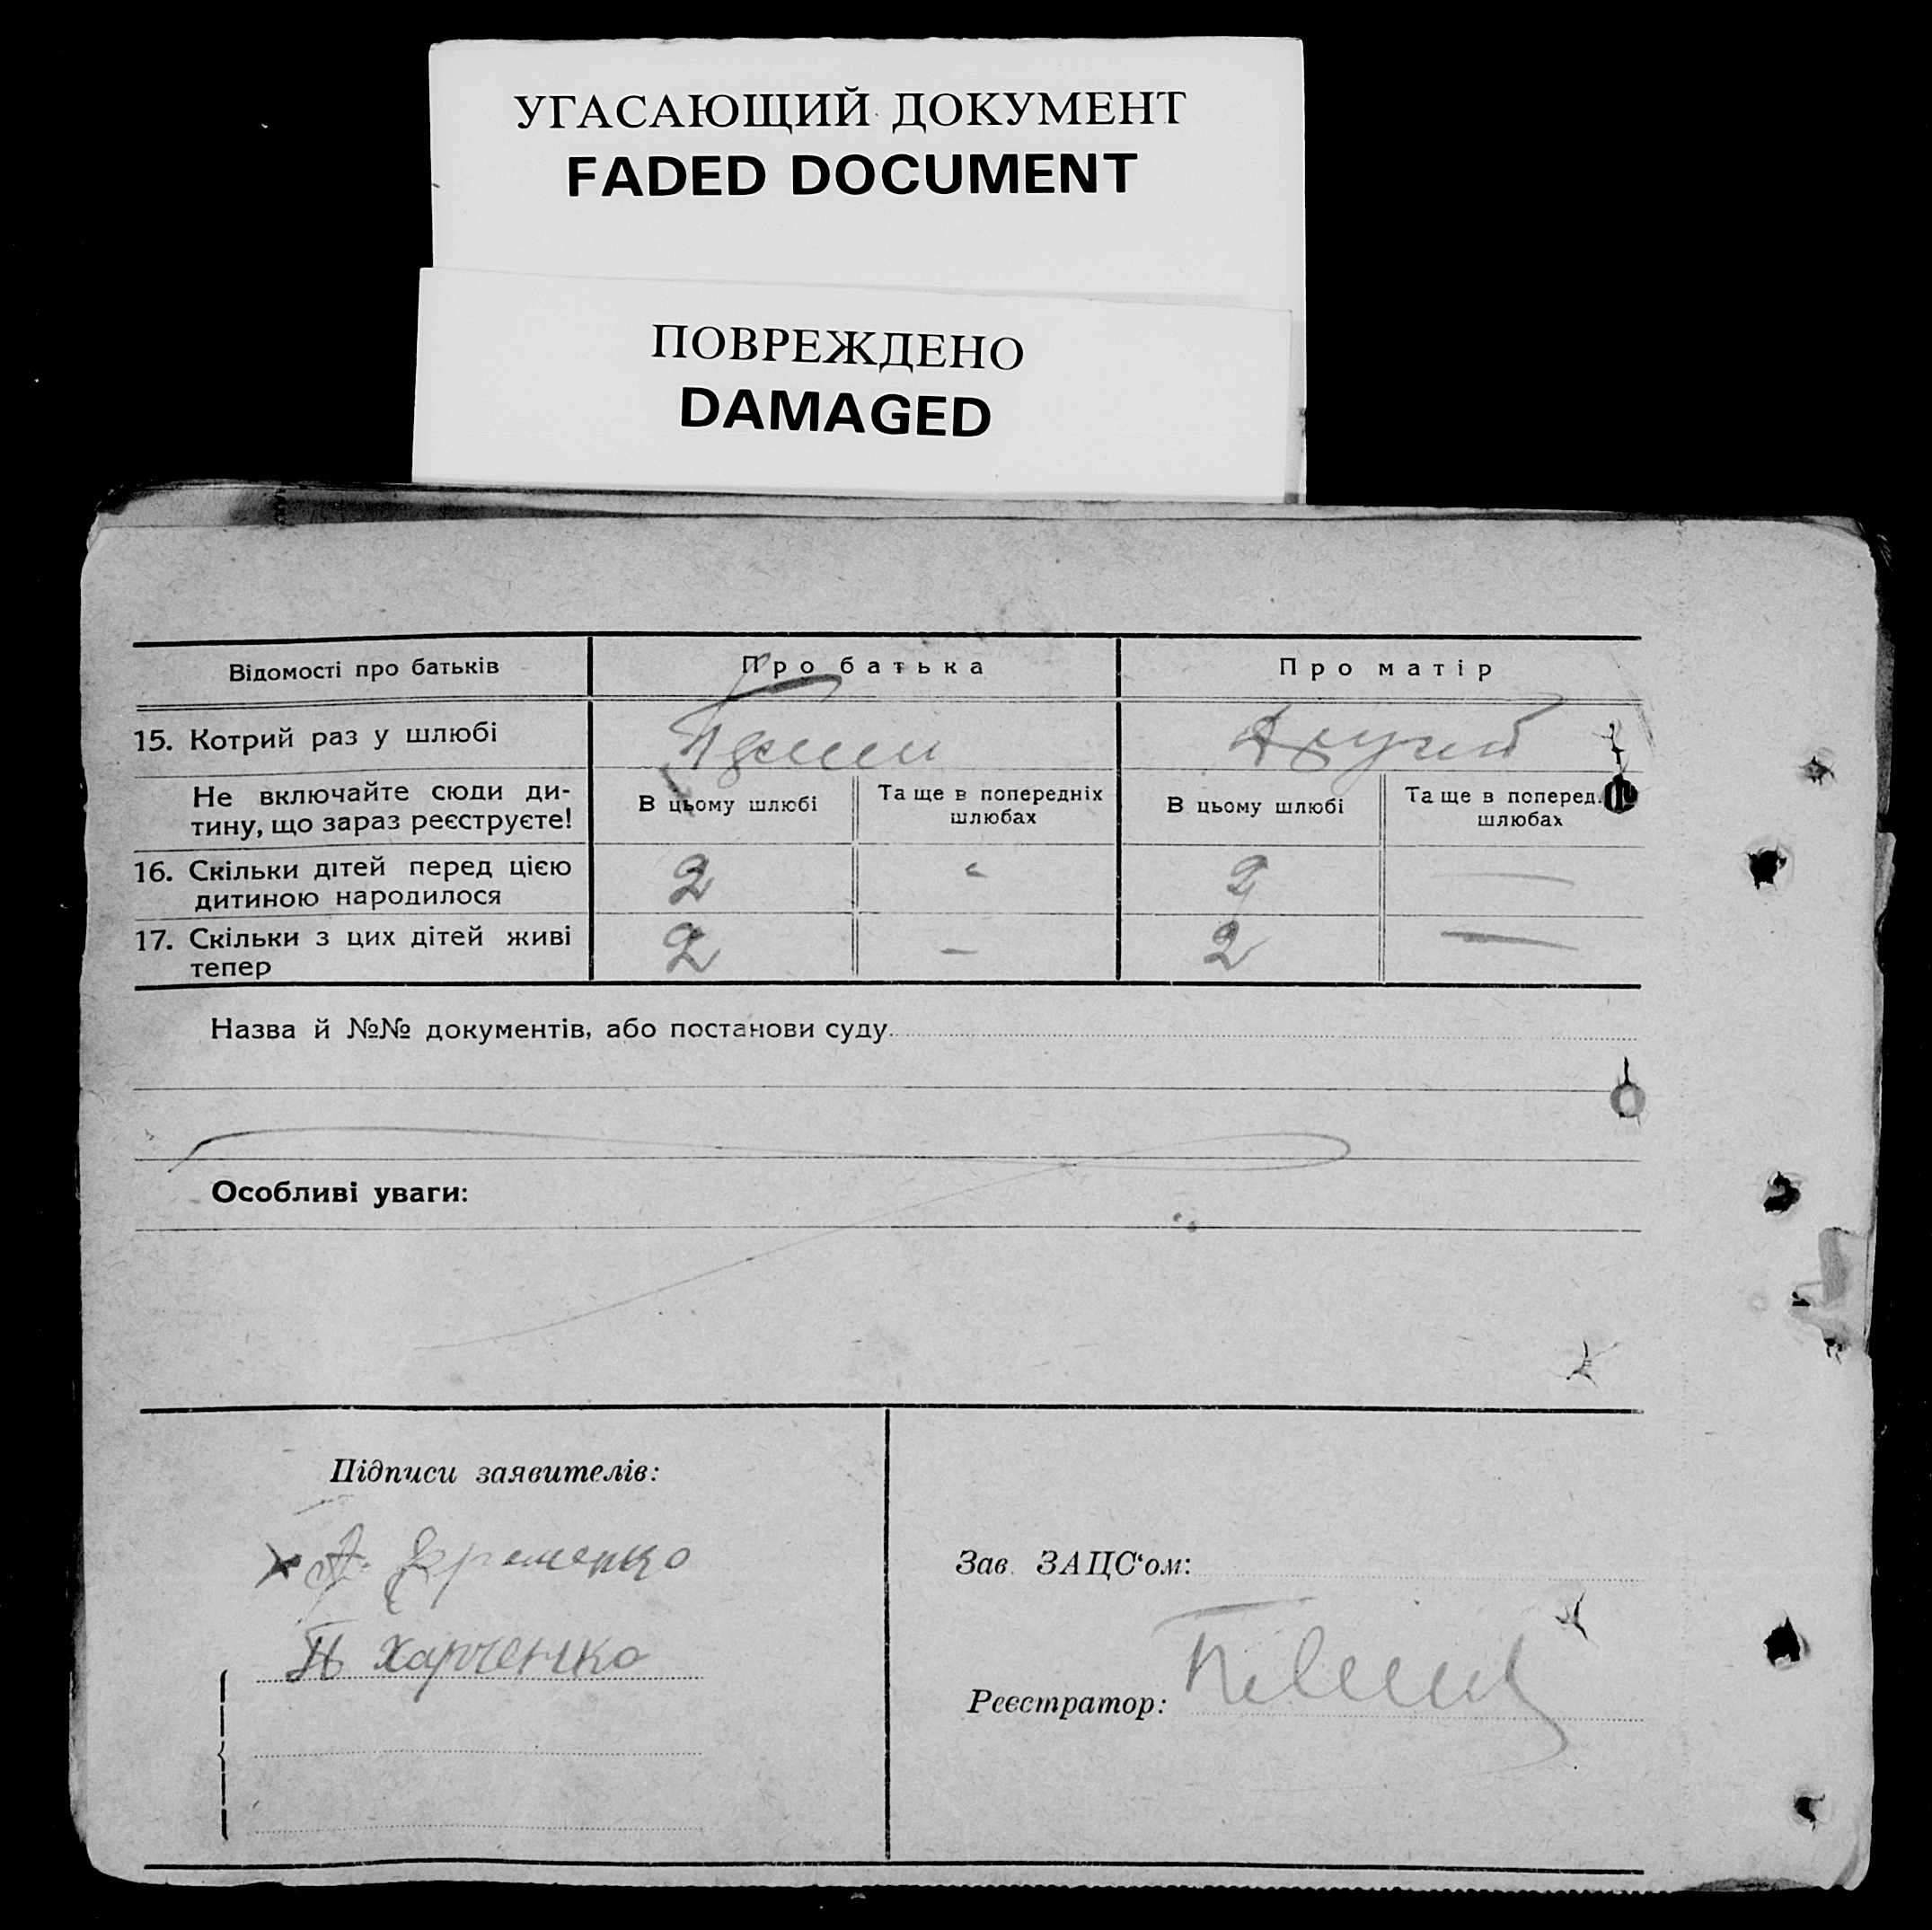 УГАСАЮЩИЙ ДОКУМЕНТ
FADED DOCUMENT
ПОВРЕЖДЕНО
DAMAGED
Відомості про батьків
Про батька
Про матір
15. Котрий раз у шлюбі
Другий
Не включайте сюди ди-
тину, що зараз реєструєте!
В цьому шлюбі
Та ще в попередніх
шлюбах
В цьому шлюбі
Та ще в поперед
шлюбах
16. Скільки дітей перед цією
дитиною народилося
2
-
2
—
17. Скільки з цих дітей живі
тепер
2
—
2
—
Назва й №№ документів, або постанови суду
Особливі уваги:
Підписи заявителів:
Харченко
Зав. ЗАЦС‘ом:
Реєстратор: